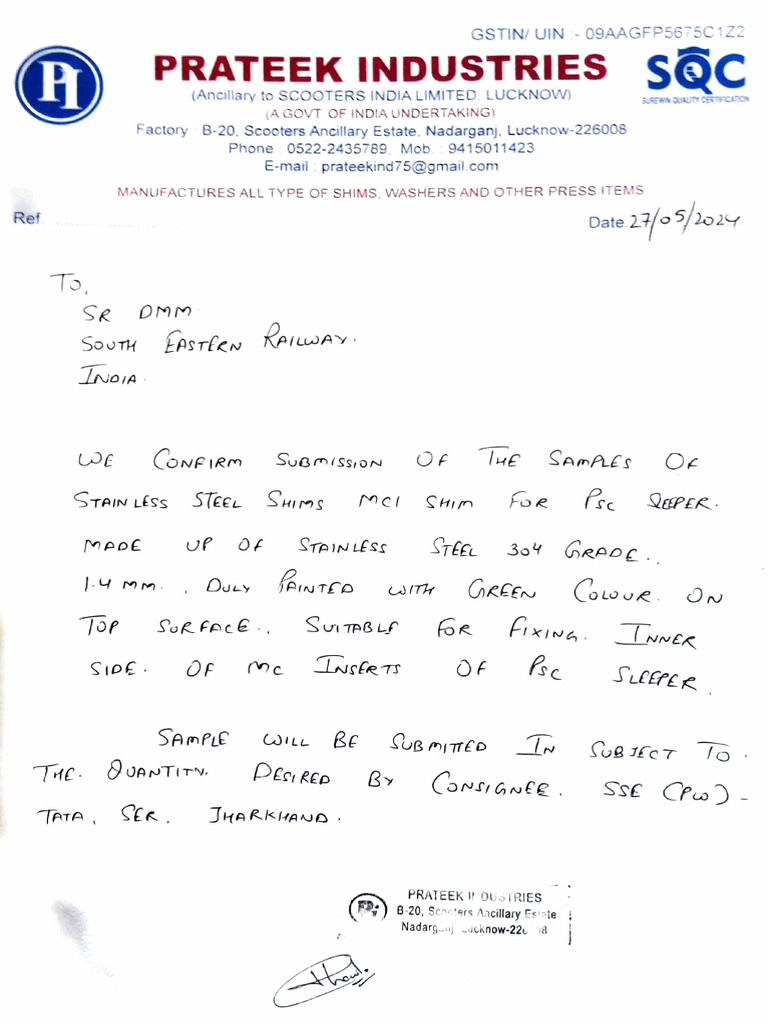 GSTIN/ UIN :- 09AAGFP5675C1Z2
PI
PRATEEK INDUSTRIES
SQC
SUREWIN QUALITY CERTIFICATION
(Ancillary to SCOOTERS INDIA LIMITED, LUCKNOW)
(A GOVT OF INDIA UNDERTAKING)
Factory B-20, Scooters Ancillary Estate, Nadarganj, Lucknow-226008
Phone : 0522-2435789, Mob. : 9415011423
E-mail : prateekind75@gmail.com
MANUFACTURES ALL TYPE OF SHIMS, WASHERS AND OTHER PRESS ITEMS
Ref ....................
Date.27/05/2024
To,
SR DMM.
SOUTH EASTERN RAILWAY.
INDIA.
WE CONFIRM SUBMISSION OF THE SAMPLES OF
STAINLESS STEEL SHIMS MCI SHIM FOR PSC SLEEPER.
MADE UP OF STAINLESS STEEL 304 GRADE.,
1.4 MM. , DULY PAINTED WITH GREEN COLOUR. ON
TOP SURFACE., SUITABLE FOR FIXING. INNER
SIDE. OF MC INSERTS OF PSC SLEEPER.
SAMPLE WILL BE SUBMITTED IN SUBJECT TO.
THE. QUANTITY. DESIRED BY CONSIGNEE. SSE (PW)-
TATA, SER, JHARKHAND.
PRATEEK INDUSTRIES
B-20, Scooters Ancillary Estate
Nadarganj, Lucknow-226008